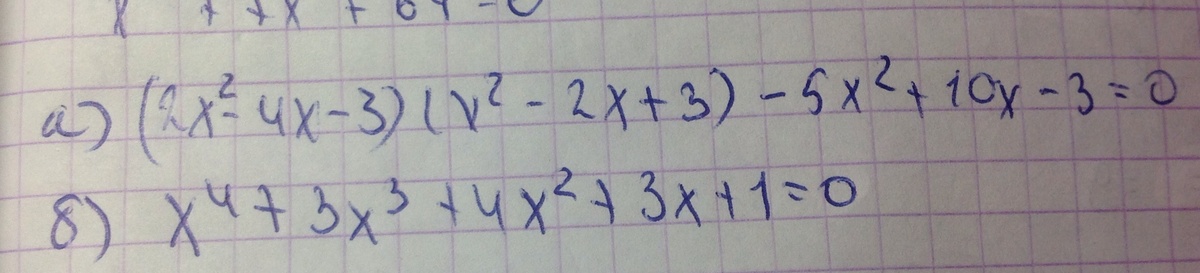 а) (2x² - 4x - 3)(x² - 2x + 3) - 5x² + 10x - 3 = 0
б) x⁴ + 3x³ + 4x² + 3x + 1 = 0